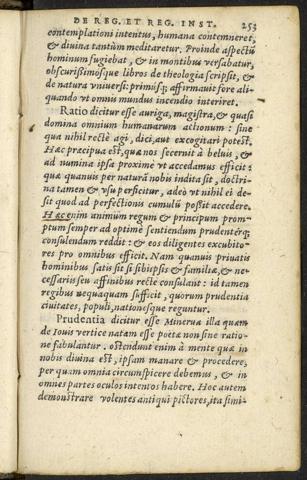 DE REG. ET REG. INST. 253
contemplationi intentus, humana contemneret,
& diuina tantùm meditaretur. Proinde aspectũ
hominum fugiebat, & in montibus versabatur,
obscurißimosque libros de theologia scripsit, &
de natura vniuersi: primusq; affirmauit fore ali-
quando vt omnis mundus incendio interiret.
Ratio dicitur esse auriga, magistra, & quasi
domina omnium humanarum actionum: sine
qua nihil rectè agi, dici, aut excogitari potest.
Hæc præcipua est, quæ nos secernit à beluis, &
ad numina ipsa proximè vt accedamus efficit:
quæ quanuis per naturã nobis indita sit, doctri-
na tamen & vsu perficitur, adeò vt nihil ei de-
sit quod ad perfectionis cumulũ poßit accedere.
Hæc enim animum regum & principum prom-
ptum semper ad optimè sentiendum prudenterq;
consulendum reddit: & eos diligentes excubito-
res pro omnibus efficit. Nam quanuis priuatis
hominibus satis sit si sibi ipsis & familiæ, & ne-
cessariis seu affinibus rectè consulant: id tamen
regibus nequaquam sufficit, quorum prudentia
ciuitates, populi, nationesque reguntur.
Prudentia dicitur esse Minerua illa quam
de Iouis vertice natam esse poetæ non sine ratio-
ne fabulantur. ostendunt enim à mente quæ in
nobis diuina est, ipsam manare & procedere,
per quam omnia circunspicere debemus, & in
omnes partes oculos intentos habere. Hoc autem
demonstrare volentes antiqui pictores, ita simi-